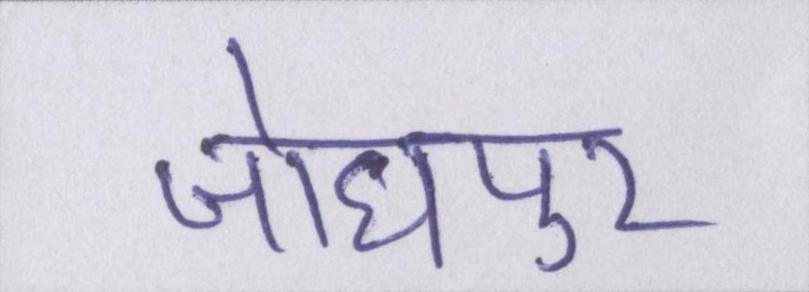 जोधपुर